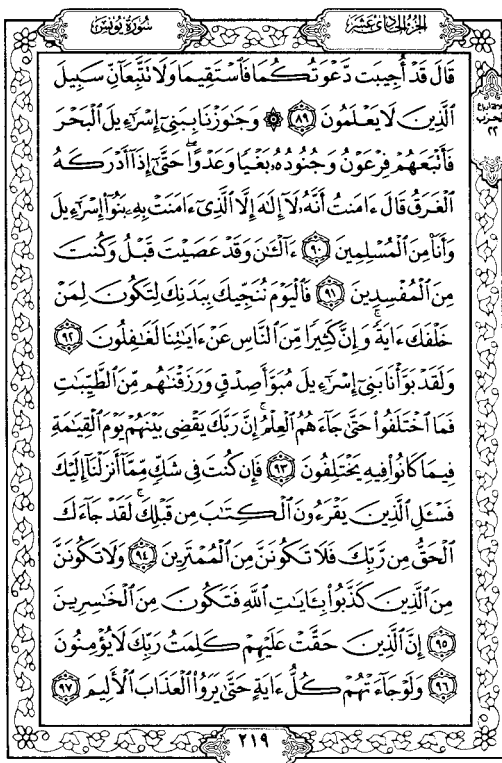 الجزء الحادي عشر
سورة يونس
قَالَ قَدْ أُجِيبَت دَّعْوَتُكُمَا فَٱسْتَقِيمَا وَلَا تَتَّبِعَآنِّ سَبِيلَ
ٱلَّذِينَ لَا يَعْلَمُونَ ﴿٨٩﴾ ۞ وَجَٰوَزْنَا بِبَنِىٓ إِسْرَٰٓءِيلَ ٱلْبَحْرَ
فَأَتْبَعَهُمْ فِرْعَوْنُ وَجُنُودُهُۥ بَغْيًا وَعَدْوًا ۖ حَتَّىٰٓ إِذَآ أَدْرَكَهُ
ٱلْغَرَقُ قَالَ ءَامَنتُ أَنَّهُۥ لَآ إِلَٰهَ إِلَّا ٱلَّذِىٓ ءَامَنَتْ بِهِۦ بَنُوٓا۟ إِسْرَٰٓءِيلَ
وَأَنَا۠ مِنَ ٱلْمُسْلِمِينَ ﴿٩٠﴾ ءَآلْـَٰٔنَ وَقَدْ عَصَيْتَ قَبْلُ وَكُنتَ
مِنَ ٱلْمُفْسِدِينَ ﴿٩١﴾ فَٱلْيَوْمَ نُنَجِّيكَ بِبَدَنِكَ لِتَكُونَ لِمَنْ
خَلْفَكَ ءَايَةً ۚ وَإِنَّ كَثِيرًا مِّنَ ٱلنَّاسِ عَنْ ءَايَٰتِنَا لَغَٰفِلُونَ ﴿٩٢﴾
وَلَقَدْ بَوَّأْنَا بَنِىٓ إِسْرَٰٓءِيلَ مُبَوَّأَ صِدْقٍ وَرَزَقْنَٰهُم مِّنَ ٱلطَّيِّبَٰتِ
فَمَا ٱخْتَلَفُوا۟ حَتَّىٰ جَآءَهُمُ ٱلْعِلْمُ ۚ إِنَّ رَبَّكَ يَقْضِى بَيْنَهُمْ يَوْمَ ٱلْقِيَٰمَةِ
فِيمَا كَانُوا۟ فِيهِ يَخْتَلِفُونَ ﴿٩٣﴾ فَإِن كُنتَ فِى شَكٍّ مِّمَّآ أَنزَلْنَآ إِلَيْكَ
فَسْـَٔلِ ٱلَّذِينَ يَقْرَءُونَ ٱلْكِتَٰبَ مِن قَبْلِكَ ۚ لَقَدْ جَآءَكَ
ٱلْحَقُّ مِن رَّبِّكَ فَلَا تَكُونَنَّ مِنَ ٱلْمُمْتَرِينَ ﴿٩٤﴾ وَلَا تَكُونَنَّ
مِنَ ٱلَّذِينَ كَذَّبُوا۟ بِـَٔايَٰتِ ٱللَّهِ فَتَكُونَ مِنَ ٱلْخَٰسِرِينَ
﴿٩٥﴾ إِنَّ ٱلَّذِينَ حَقَّتْ عَلَيْهِمْ كَلِمَتُ رَبِّكَ لَا يُؤْمِنُونَ
﴿٩٦﴾ وَلَوْ جَآءَتْهُمْ كُلُّ ءَايَةٍ حَتَّىٰ يَرَوُا۟ ٱلْعَذَابَ ٱلْأَلِيمَ ﴿٩٧﴾
الحزب
٢٢
٢١٩